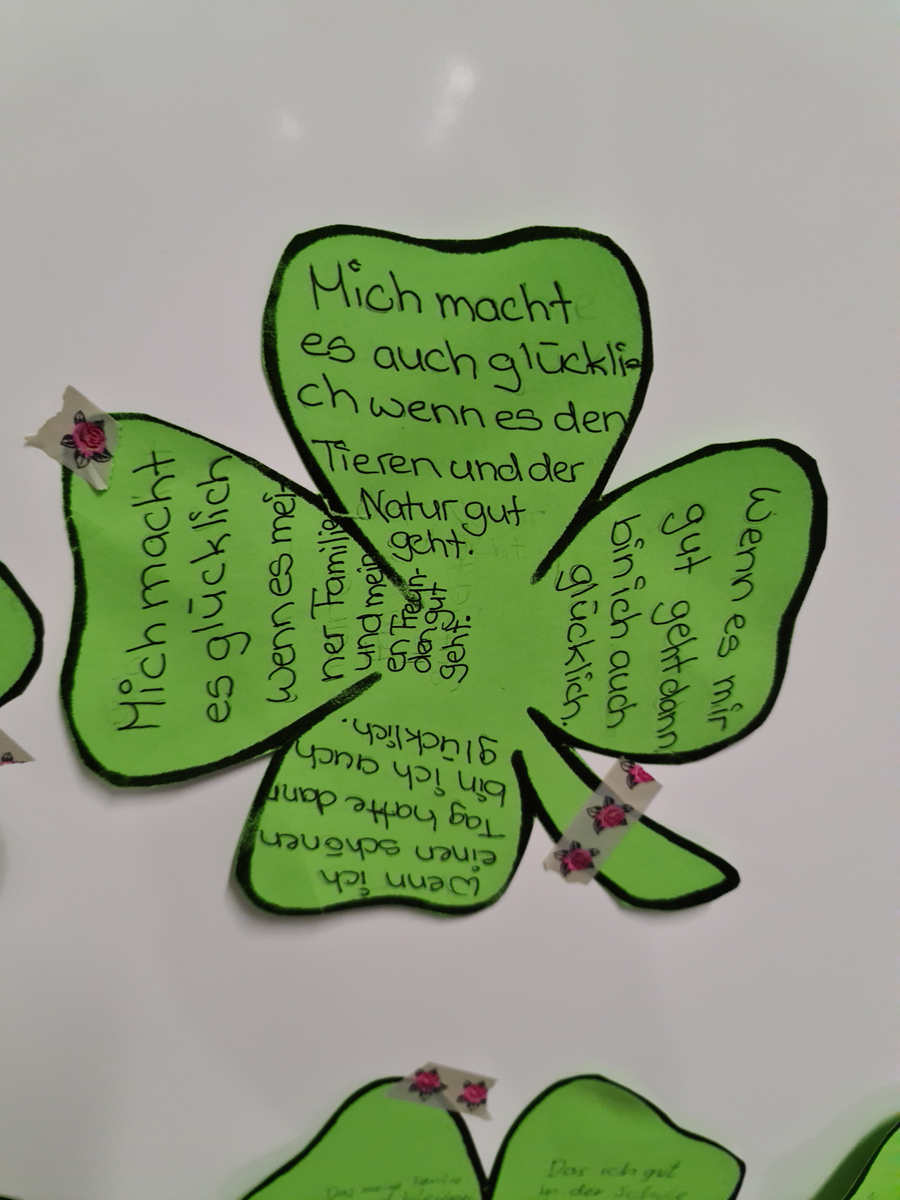 Mich macht
es auch glückli
ch wenn es den
Tieren und der
Natur gut
geht.
Wenn es mir
gut geht dann
bin ich auch
glücklich.
Wenn ich
einen schönen
Tag hatte dann
bin ich auch
glücklich.
Mich macht
es glücklich
wenn es mei
ner Familie
und mein
en Freun
den gut
geht.
Das ich gut
in der Schule